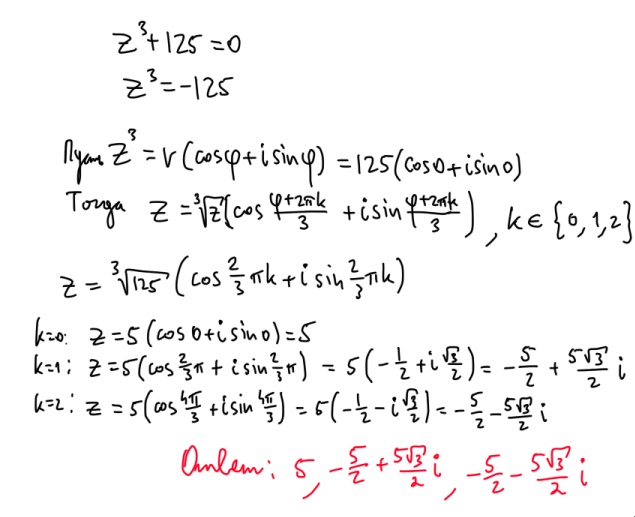 z³+125=0
z³=-125
Пусть z³=r(cosφ+isinφ)=125(cos0+isin0)
Тогда z=³√z(cos (φ+2πk)/3 +isin (φ+2πk)/3), k∈{0,1,2}
z=³√125(cos 2/3 πk+i sin 2/3 πk)
k=0: z=5(cos0+isin0)=5
k=1: z=5(cos 2/3 π+isin 2/3 π)=5(-1/2+i √3/2)=-5/2+5√3/2 i
k=2: z=5(cos 4π/3+isin 4π/3)=5(-1/2-i √3/2)=-5/2-5√3/2 i
Ответ: 5, -5/2+5√3/2 i, -5/2-5√3/2 i